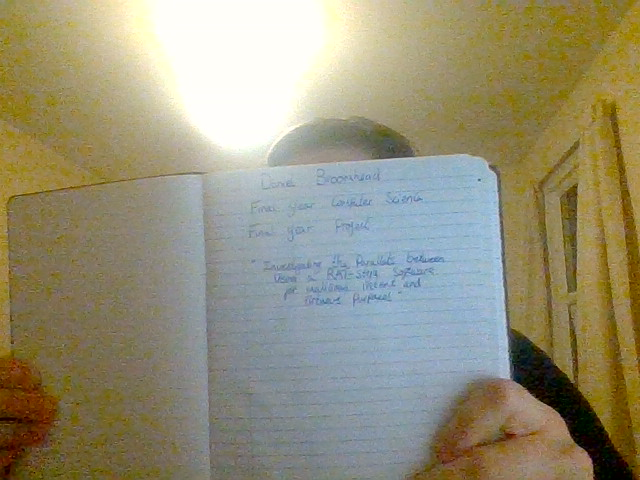 Daniel Broomhead
Final year Computer Science
Final year Project
"Investigating the Parallels between
Using a RAT-Style Software
for malicious intent and
Defensive Purposes"